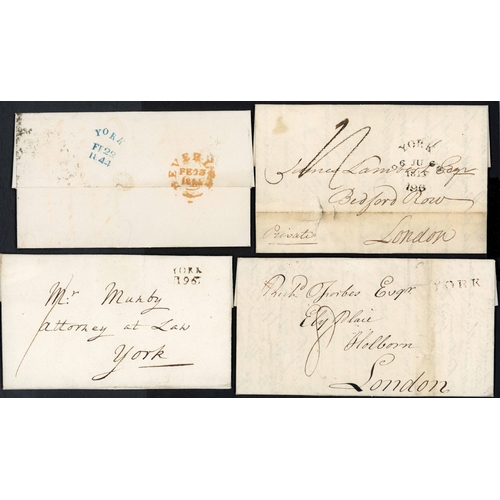 YORK
FE 28
1843
BEVERLEY
FE 28
1843
YORK
6 JU 6
196
Esqr
Bedford Row
Private
London
YORK
196
Mr Munby
Attorney at Law
York
YORK
Richd Forbes Esqr
Ely Place
Holborn
London